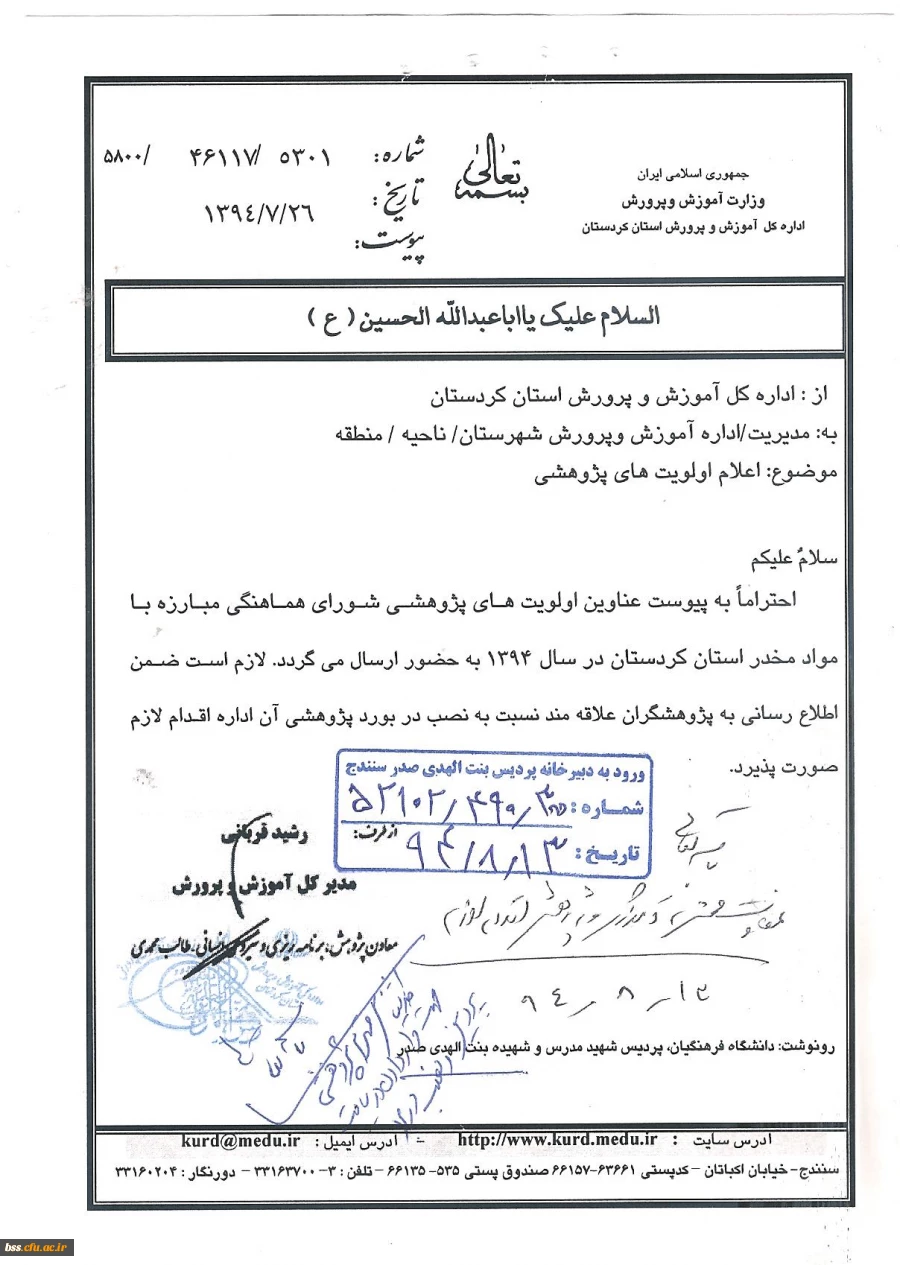 بسمه تعالی
جمهوری اسلامی ایران
وزارت آموزش وپرورش
اداره کل آموزش و پرورش استان کردستان
شماره: ۵۳۰۱ /۴۶۱۱۷ /۵۸۰۰
تاریخ: ۱۳۹٤/۷/۲۶
پیوست:
السلام علیک یااباعبدالله الحسین ( ع )
از : اداره کل آموزش و پرورش استان کردستان
به: مدیریت/اداره آموزش وپرورش شهرستان/ ناحیه / منطقه
موضوع: اعلام اولویت های پژوهشی
سلامٌ علیکم
احتراماً به پیوست عناوین اولویت های پژوهشی شورای هماهنگی مبارزه با
مواد مخدر استان کردستان در سال ۱۳۹۴ به حضور ارسال می گردد. لازم است ضمن
اطلاع رسانی به پژوهشگران علاقه مند نسبت به نصب در بورد پژوهشی آن اداره اقدام لازم
صورت پذیرد.
ورود به دبیرخانه پردیس بنت الهدی صدر سنندج
شماره: ۵۲۱۰۲/۴۹۰/۳۰۰
از طرف:
تاریخ: ۹۴/۸/۱۳
رشید قربانی
مدیر کل آموزش و پرورش
معاون پژوهش، برنامه ریزی و نیروی انسانی، طالب محمدی
۹٤ ر ۸ ر ۱۳
رونوشت: دانشگاه فرهنگیان، پردیس شهید مدرس و شهیده بنت الهدی صدر
ادرس سایت : http://www.kurd.medu.ir - ادرس ایمیل : kurd@medu.ir
سنندج- خیابان اکباتان – کدپستی ۶۳۶۶۱-۶۶۱۵۷ صندوق پستی ۵۳۵- ۶۶۱۳۵ – تلفن : ۳- ۳۳۱۶۳۷۰۰ – دورنگار : ۳۳۱۶۰۲۰۴
bss.cfu.ac.ir